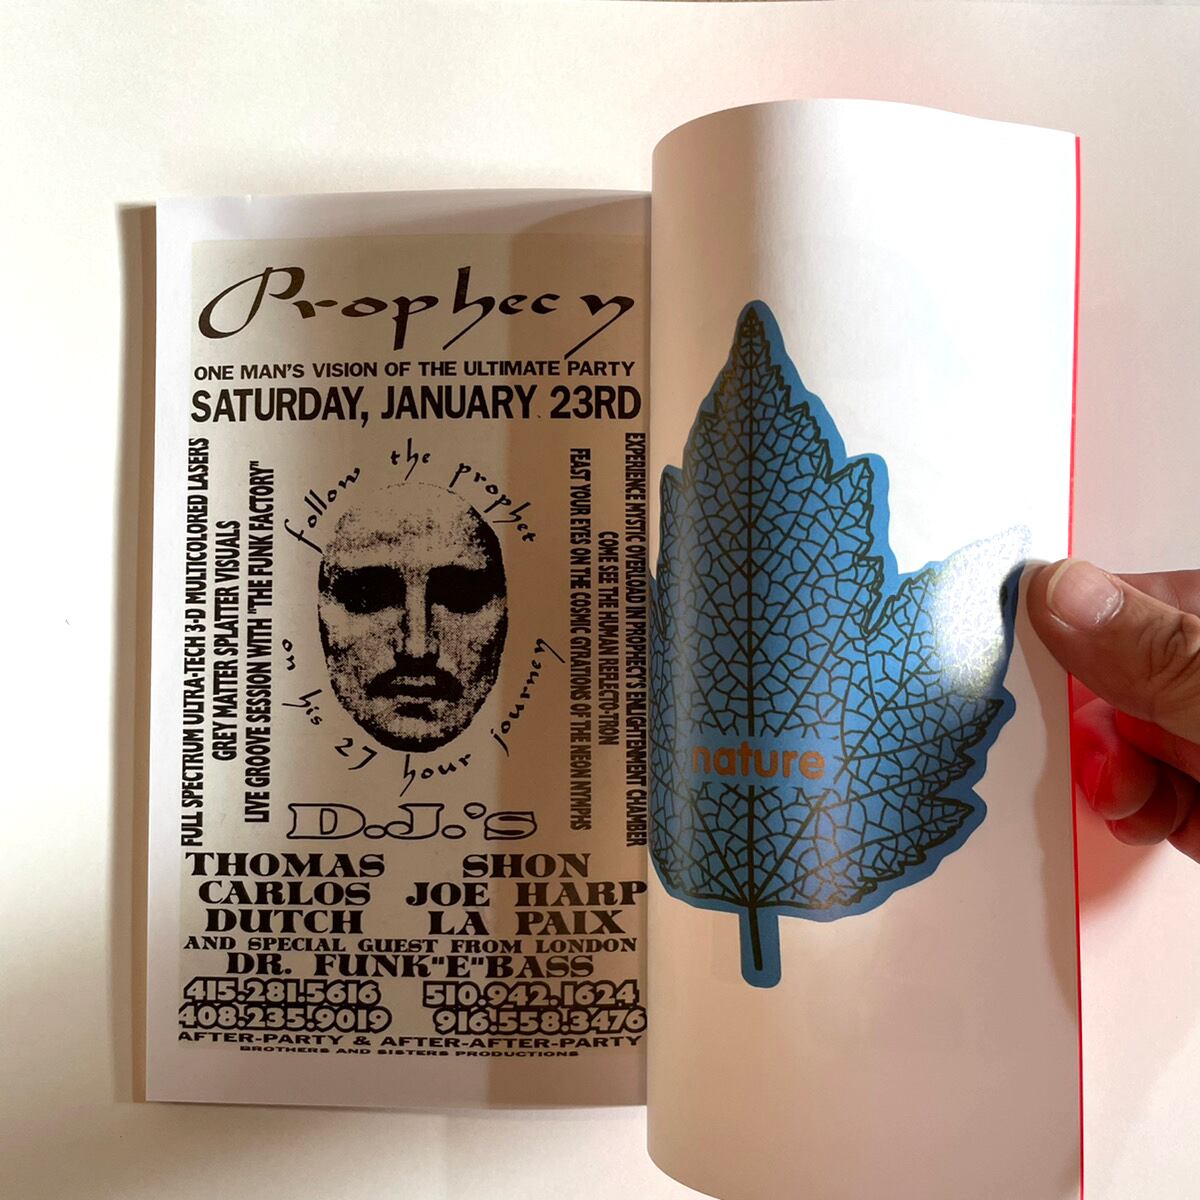 Prophecy
ONE MAN'S VISION OF THE ULTIMATE PARTY
SATURDAY, JANUARY 23RD
FULL SPECTRUM ULTRA-TECH 3-D MULTICOLORED LASERS
GREY MATTER SPLATTER VISUALS
LIVE GROOVE SESSION WITH "THE FUNK FACTORY"
follow the prophet
on his 27 hour journey
EXPERIENCE MYSTIC OVERLOAD IN PROPHECY'S ENLIGHTENMENT CHAMBER
COME SEE THE HUMAN REFLECTO-TRON
FEAST YOUR EYES ON THE COSMIC GYRATIONS OF THE NEON NYMPHS
D.J.'s
THOMAS SHON
CARLOS JOE HARP
DUTCH LA PAIX
AND SPECIAL GUEST FROM LONDON
DR. FUNK"E"BASS
415.281.5616 510.942.1624
408.235.9019 916.558.3476
AFTER-PARTY & AFTER-AFTER-PARTY
BROTHERS AND SISTERS PRODUCTIONS
nature